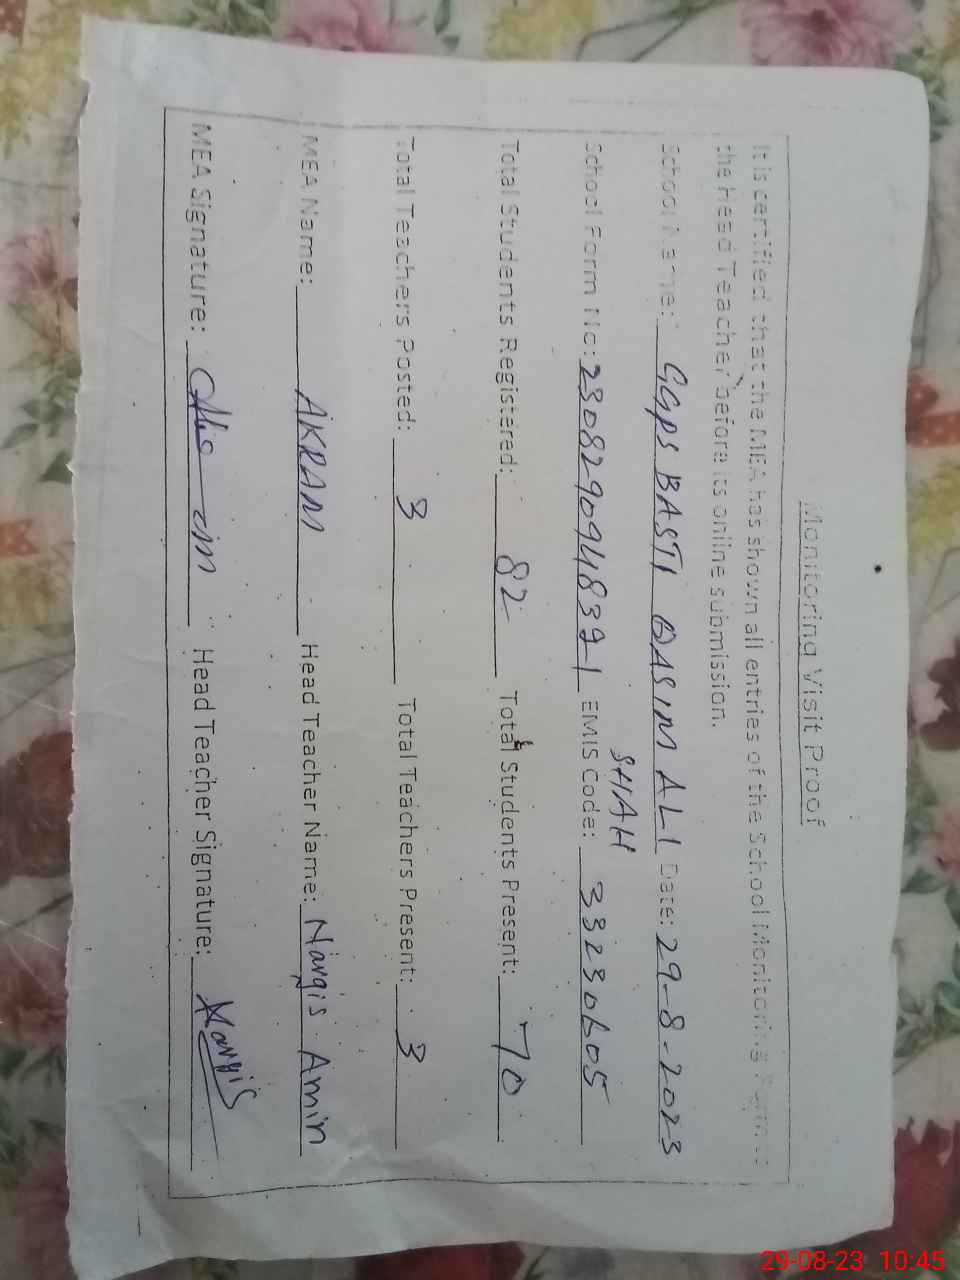 Monitoring Visit Proof
It is certified that the MEA has shown all entries of the School Monitoring Form to
the Head Teacher before its online submission.
School Name: GGPS BASTI QASIM ALI Date: 29-8-2023
SHAH
School Form No: EMIS Code: 33230605
Total Students Registered: 82 Total Students Present: 70
Total Teachers Posted: 3 Total Teachers Present: 3
MEA Name: AKRAM Head Teacher Name: Nargis Amin
MEA Signature: Head Teacher Signature: Nargis
29-08-23 10:45